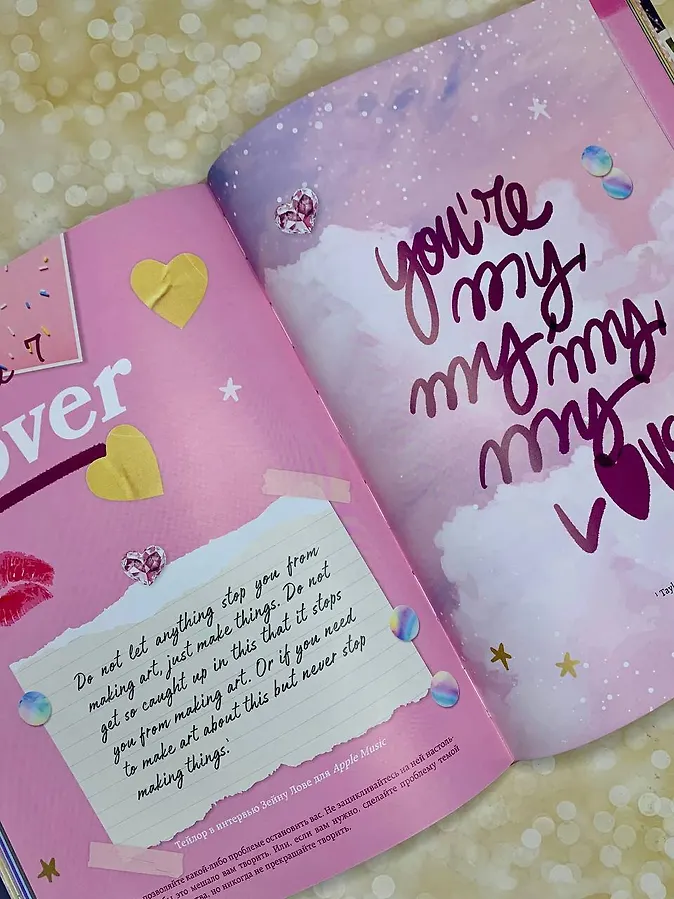 7
over
Do not let anything stop you from
making art, just make things. Do not
get so caught up in this that it stops
you from making art. Or if you need
to make art about this but never stop
making things.¹
Тейлор в интервью Зейну Лове для Apple Music
позволяйте какой-либо проблеме остановить вас. Не зацикливайтесь на ней настоль-
бы это мешало вам творить. Или, если вам нужно, сделайте проблему темой
но никогда не прекращайте творить.
you're
my,
my, my,
my